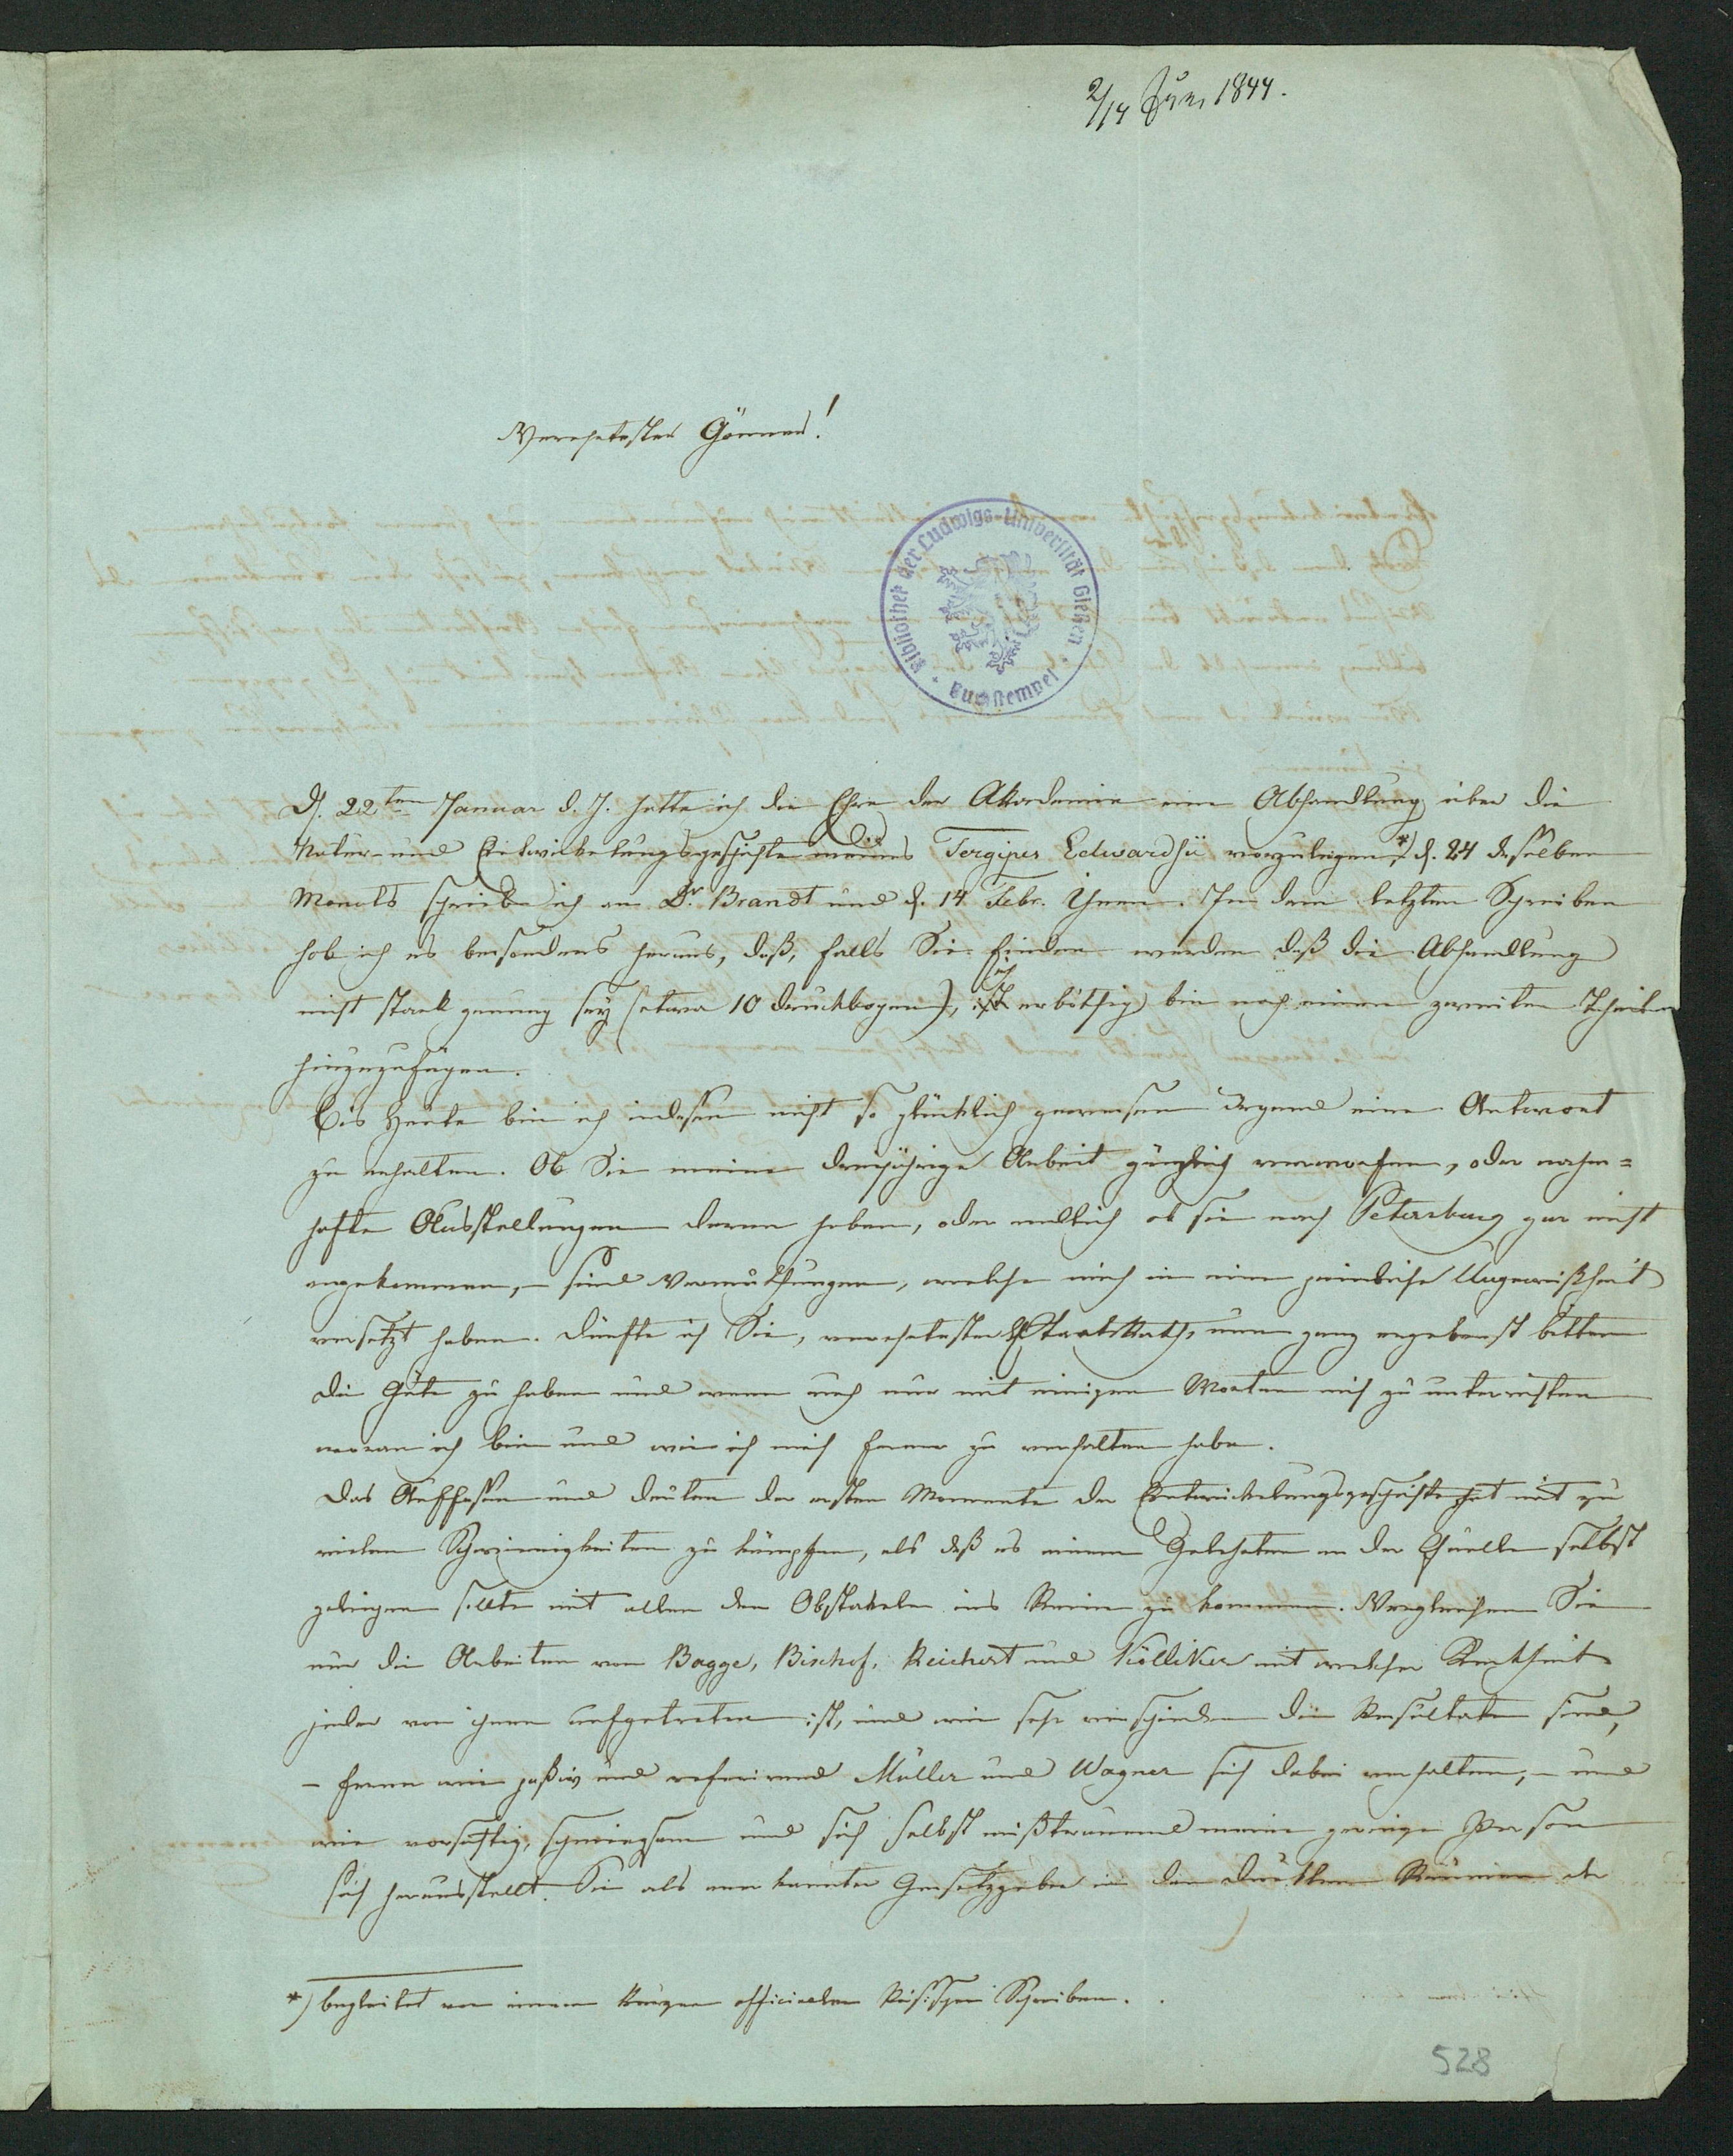 2/14 Juni 1844.
Verehrtester Gönner!
Bibliothek der Ludwigs-Universität Gießen
Buchstempel
D. 22ten Januar d. J. hatte ich die Ehre der Akademie eine Abhandlung über die
Natur- und Entwickelungsgeschichte des Tergipes Edwardsii vorzulegen *) d. 24 desselben
Monats schrieb ich an Dr. Brandt und d. 14 Febr. Ihnen. In dem letzten Schreiben
hob ich es besonders heraus, daß, falls Sie finden werden daß die Abhandlung
nicht stark genung sey (etwa 10 Druckbogen), ich erböthig bin noch einen zweiten
hinzuzufügen.
Bis Heute bin ich indessen nicht so glücklich gewesen irgend eine Antwort
zu erhalten. Ob Sie meine dreijährige Arbeit gänzlich verworfen, oder nahm=
hafte Ausstellungen daran haben, oder endlich ob sie nach Petersburg gar nicht
angekommen, – sind Vermuthungen, welche mich in eine peinliche Ungewißheit
versetzt haben. Dürfte ich Sie, verehrtester H. Staatsrath, nun ganz ergebenst bitten
die Güte zu haben und wenn auch nur mit einigen Worten mich zu unterrichten
woran ich bin und wie ich mich ferner zu verhalten habe.
Das Auffassen und Deuten der ersten Momente der Entwickelungsgeschichte hat mit zu
vielen Schwierigkeiten zu kämpfen, als daß es einem Gelehrten an der Quelle selbst
gelingen sollte mit allen den Obstakeln ins Reine zu kommen. Vergleichen Sie
nur die Arbeiten von Bagge, Bischof, Reichert und Kölliker mit welcher Keckheit
jeder von ihnen aufgetreten ist, und wie sehr verschieden die Resultate sind,
– ferner wie passiv und referirend Müller und Wagner sich dabei verhalten, – und
wie vorsichtig, schweigsam und sich selbst mißtrauend meine geringe Person
sich herausstellt. Sie als anerkannter Gesetzgeber in den dunklen Räumen der
*) begleitet von einem kurzen officiellen Russischen Schreiben.
528